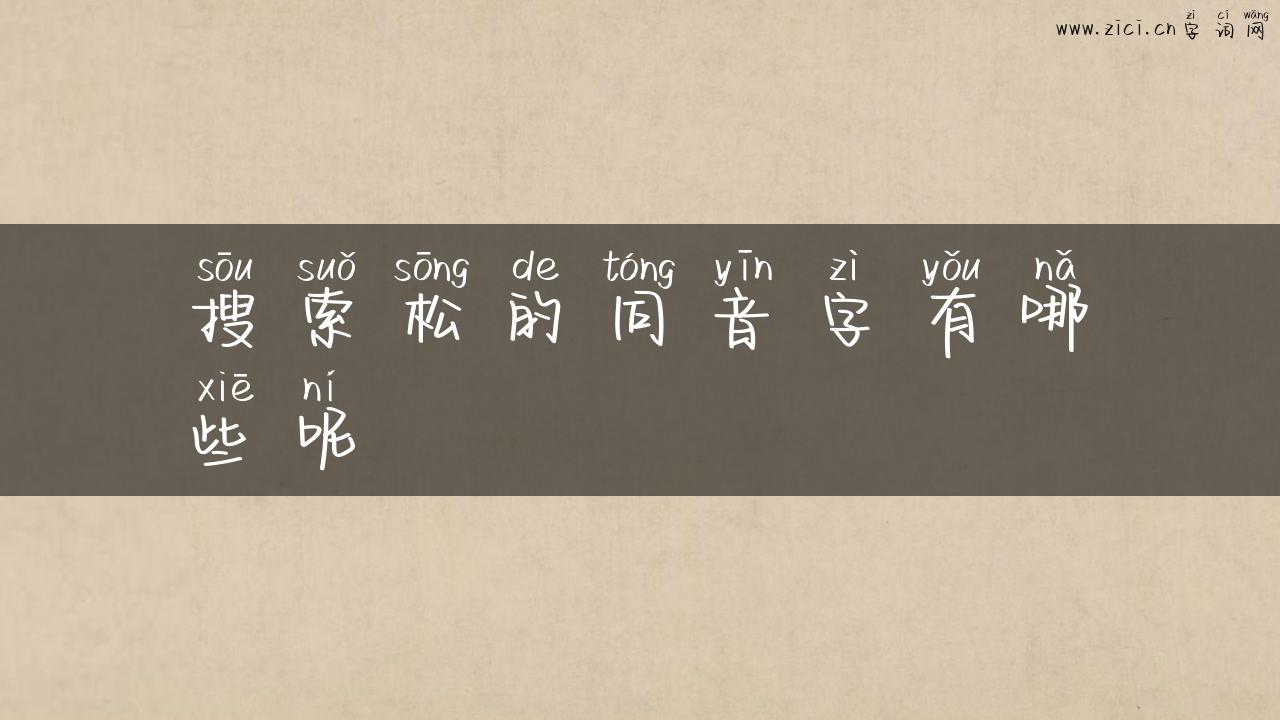 zì cí wǎng
www.zici.cn 字词网
sōu suǒ sōng de tóng yīn zì yǒu nǎ
搜索松的同音字有哪
xiē ní
些呢